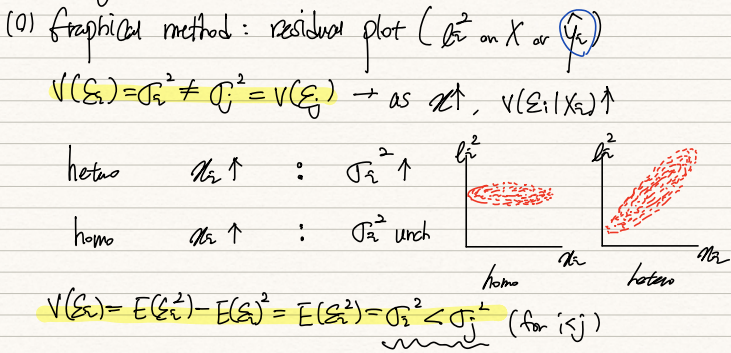 (0) Graphical method : residual plot ( eᵢ² on X or ŷᵢ )
V(εᵢ) = σᵢ² ≠ σⱼ² = V(εⱼ) → as x↑, V(εᵢ|Xᵢ)↑
hetero xᵢ ↑ : σᵢ² ↑
homo xᵢ ↑ : σᵢ² unch
eᵢ² eᵢ²
xᵢ xᵢ
homo hetero
V(εᵢ) = E(εᵢ²) - E(εᵢ)² = E(εᵢ²) = σᵢ² < σⱼ² (for i<j)